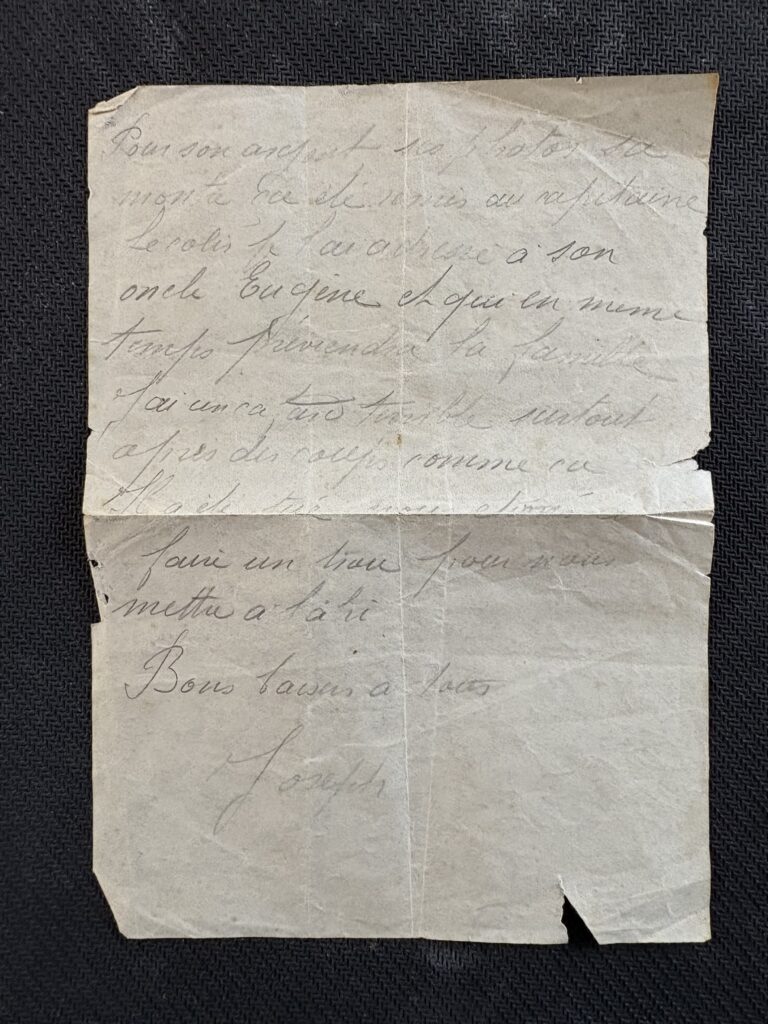 Pour son argent ses photos sa
montre ça a été remis au capitaine
le colis je l'ai adressé à son
oncle Eugène et qui en meme
temps préviendra la famille
J'ai un ca terrible surtout
après des coups comme ca
Il a été tué
faire un trou pour nous
mettre a l'abri
Bons baisers a tous
Joseph